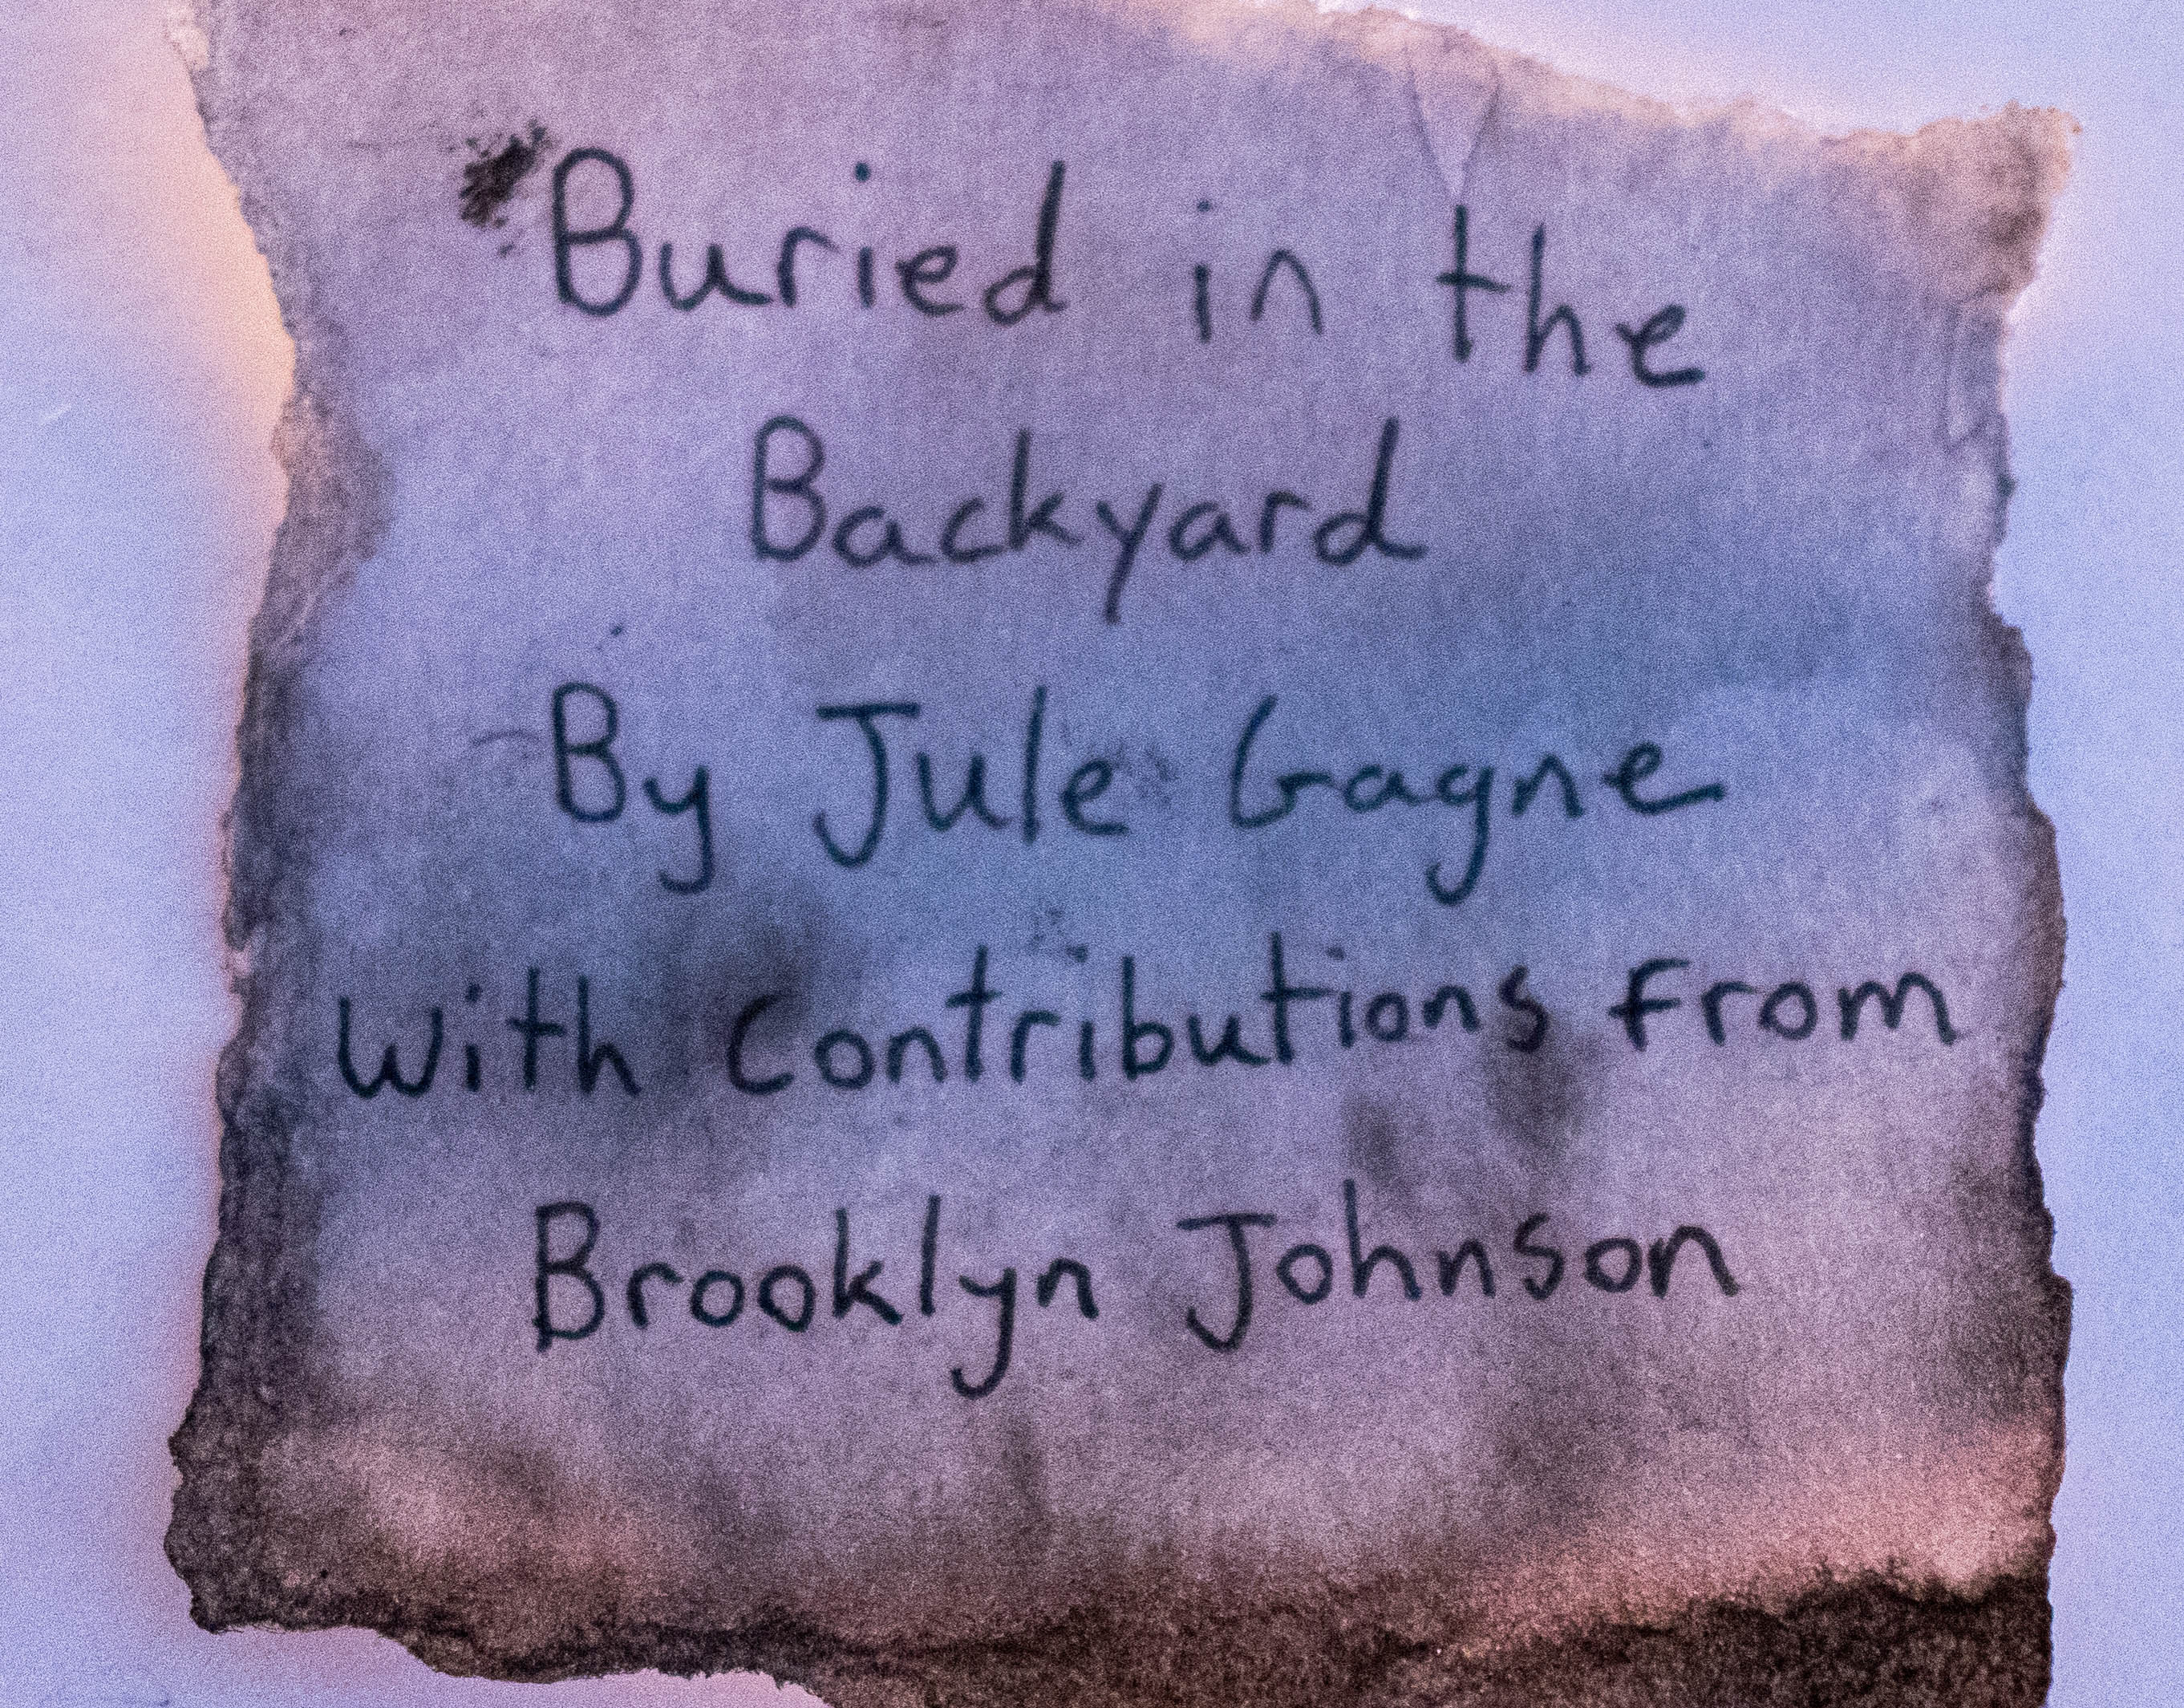 Buried in the
Backyard
By Jule Gagne
With Contributions from
Brooklyn Johnson